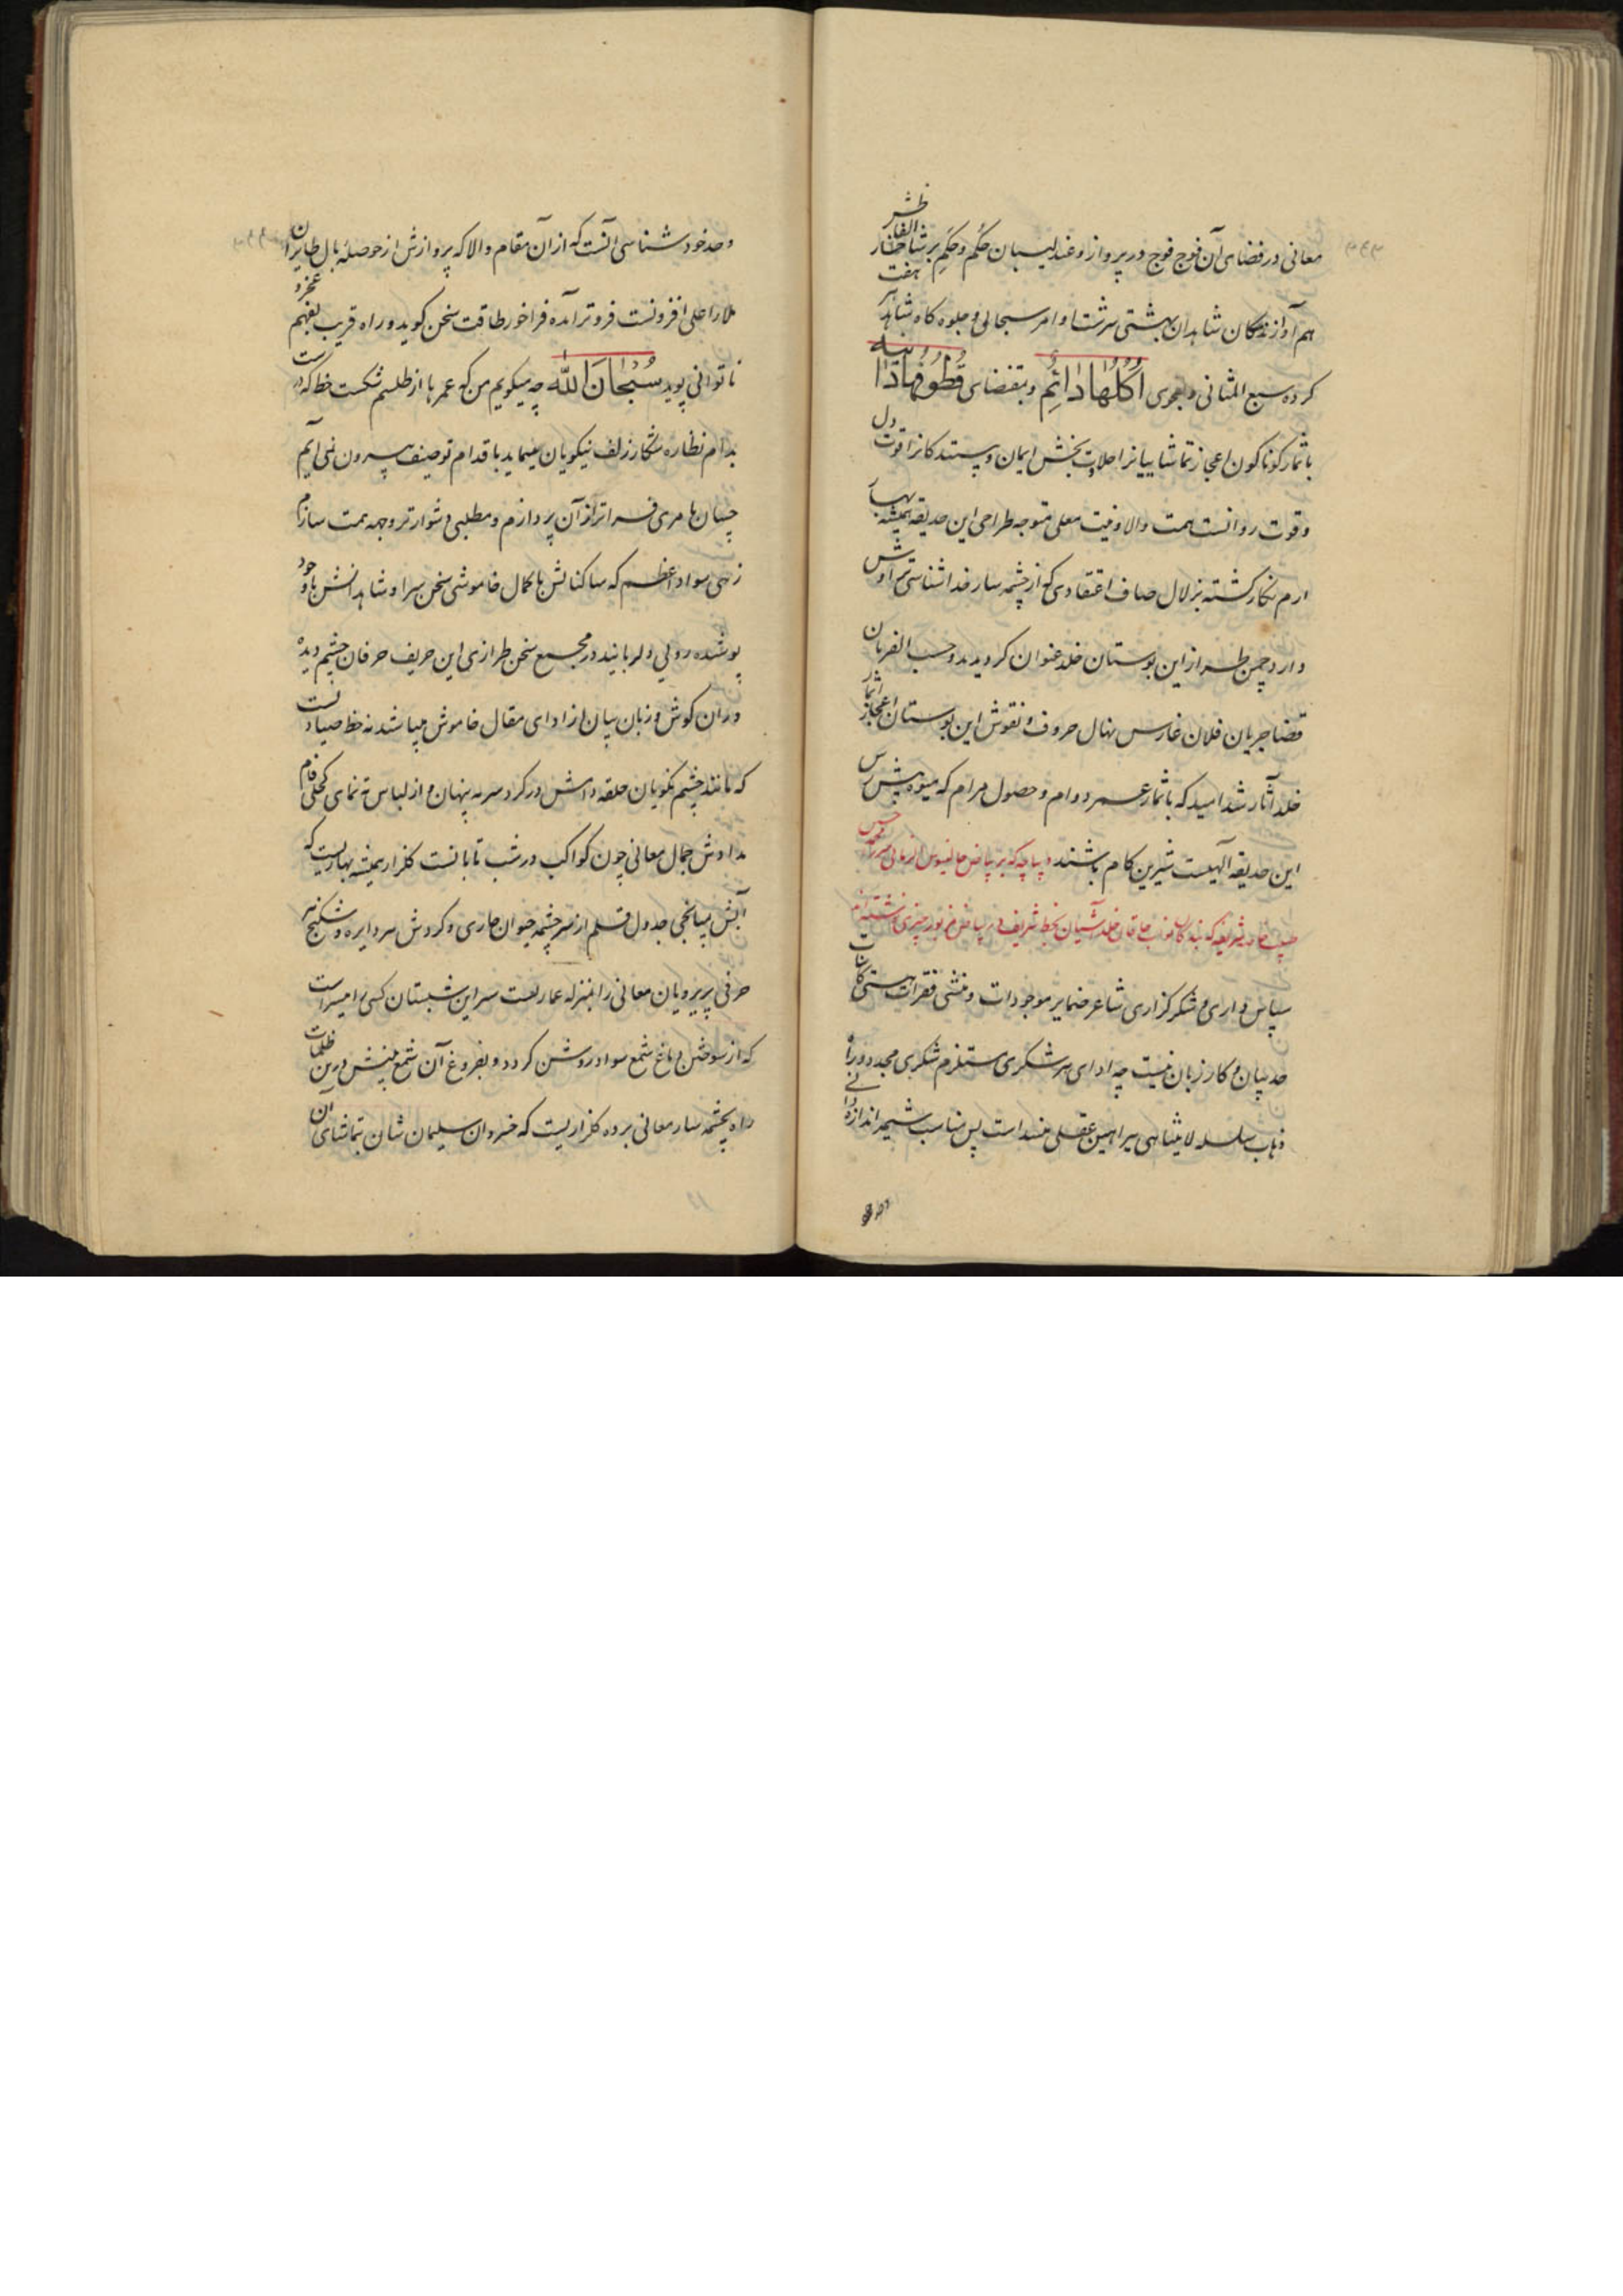 معانی در فضای آن فوج فوج در پرواز و عندلیبان حُکم و حِکَم بر شاخسار الفاظش
هم آواز زندگان شاهدان بهشتی سرشت اوامر سبحانی و جلوه کاه شاهد هفت
کرده سبع المثانی و بفحوی اُکُلُهَا دَائِمٌ و بمقتضای قُطُوفُهَا دَانِیَه
باثمار کوناکون اعجاز تماشاییانرا حلاوت بخش ایمان و پسندکانرا قوت دل
و قوت روانست همت والا و نیت معلی متوجه طراحی این حدیقه همیشه بهار
ارم نکار کشته بزلال صاف اعتقادی که از چشمه سار خداشناسی تراوش
دارد چمن طراز این بوستان خلد عنوان کردیدند و حسب الفرمان
قضا جریان فلان غارس نهال حروف و نقوش این بوستان اعجاز آثار
خلد آثار شد امید که باثمار عمر دوام و حصول مرام که میوه پیش رس
این حدیقه الهیست شیرین کام باشند دیباچه که بر بیاض
خلد آشیان بخط شریف در بیاض مزبور چیزی نوشته اند
سپاس داری و شکر کزاری شاعر ضمایر موجودات و منشی فقرات هستی کاینات
حد بیان و کار زبان نیست چه ادای هر شکری مستلزم شکری مجدد و راه
ذهاب سلسله لا یتناهی ببراهین عقلی منسد است پس مناسب شیمه اندازه دانی
و حد خود شناسی آنست که از آن مقام والا که پروازش از حوصله بال طایران
ملاء اعلی افزونست فروتر آمده فراخور طاقت سخن کوید و راه قریب بفهم عجز و
ناتوانی پوید سُبْحَانَ اللّه چه میکویم من که عمرها از طلسم شکست خط که درست
بدام نظاره شکار زلف نیکویان مینماید باقدام توصیف بیرون نمی آیم
چسان بامری فراتر از آن پردازم و مطلبی دشوارتر وجهه همت سازم
زهی سواد اعظم که ساکنانش با کمال خاموشی سخن سرا و شاهدانش با وجود
پوشیده رویی دلربایند در مجمع سخن طرازی این حریف حرفان چشم دیده
وران کوش و زبان بیان از ادای مقال خاموش میباشد نه خط صیادیست
که مانند چشم نکویان حلقه دامش در کرد سرمه پنهان و از لباس ته نمای کحلی فام
مدادش جمال معانی چون کواکب در شب تابانست کلزار همیشه بهاریست که
آبش بمیانجی جدول قلم از سرچشمه حیوان جاری و کردش هر دایره و شکنج هر
حرفی پریرویان معانی را بمنزله عماریست سیر این شبستان کسی را میسر است
که از سوختن دماغ شمع سواد روشن کردد و بفروغ آن شمع بینش درین ظلمات
راه بچشمه سار معانی برده کلزاریست که خسروان سلیمان شان بتماشای آن